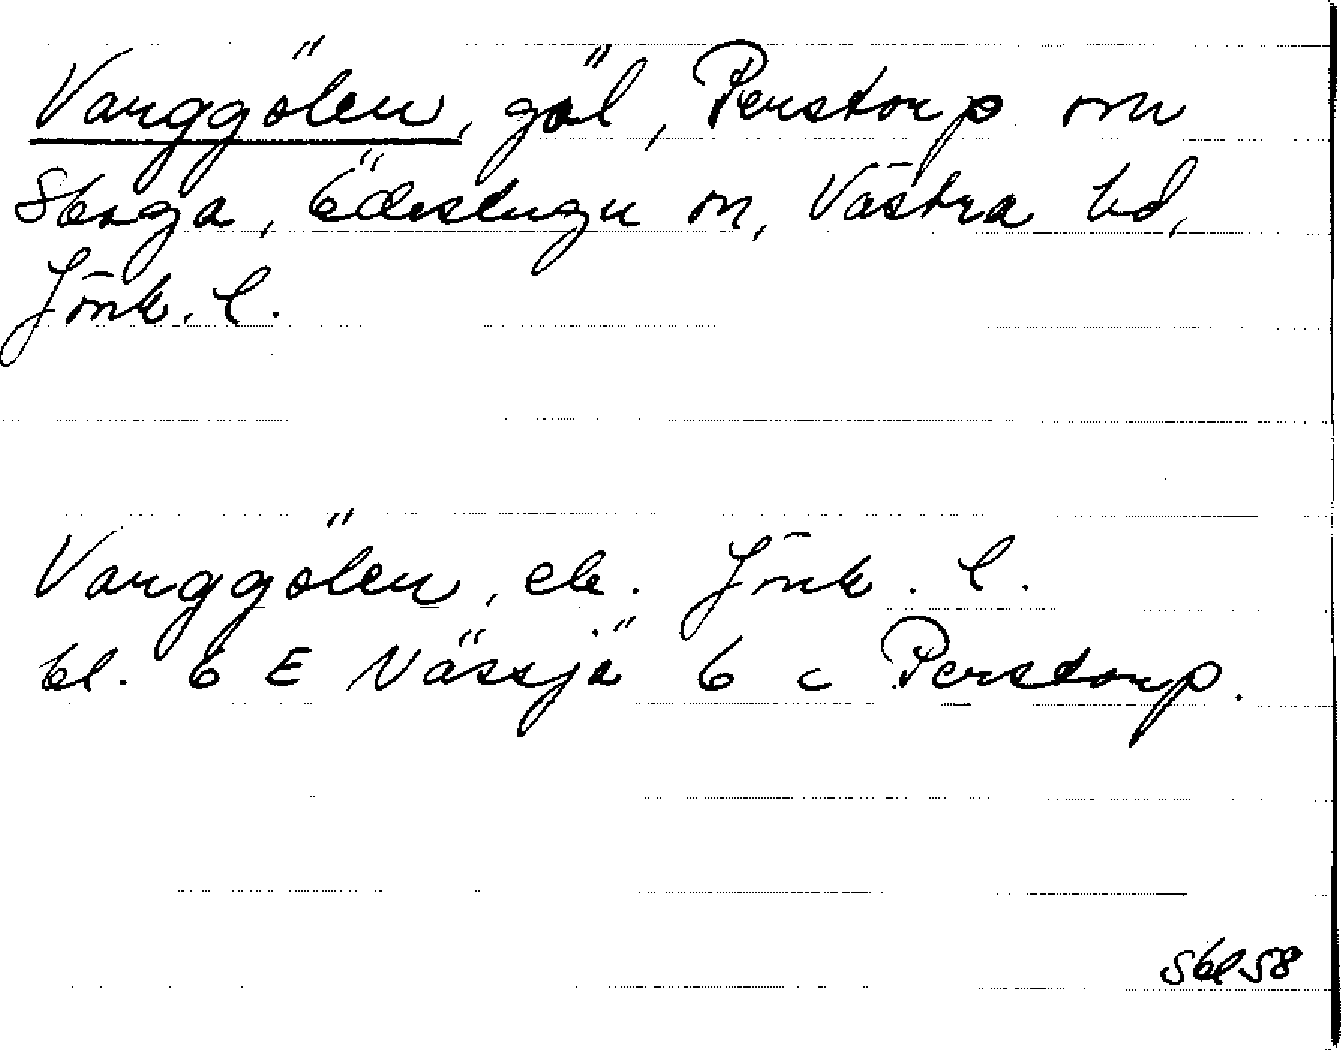 Varggölen, göl, Perstorp
Ödestugu sn, Västra hd,
Jönk. l.
Varggölen, ek. Jönk. l.
bl. 6 E Nässjö 6 c Perstorp.